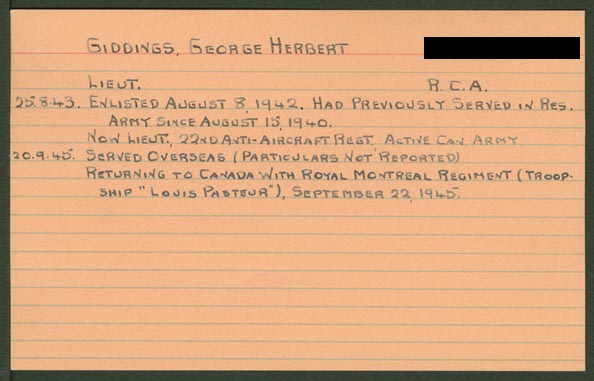 GIDDINGS, GEORGE HERBERT
LIEUT. R.C.A.
25.8.43. ENLISTED AUGUST 8, 1942. HAD PREVIOUSLY SERVED IN RES.
ARMY SINCE AUGUST 15, 1940.
NOW LIEUT., 22ND ANTI-AIRCRAFT REGT. ACTIVE CAN. ARMY
20.9.45. SERVED OVERSEAS (PARTICULARS NOT REPORTED)
RETURNING TO CANADA WITH ROYAL MONTREAL REGIMENT (TROOP-
SHIP "LOUIS PASTEUR"), SEPTEMBER 22, 1945.